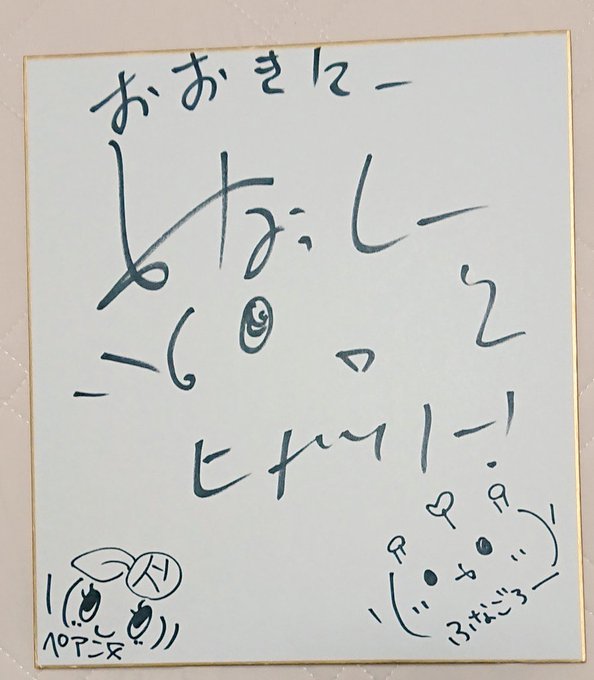 おおきにー
ふなっしー
ヒャッハー!
ふなごろー